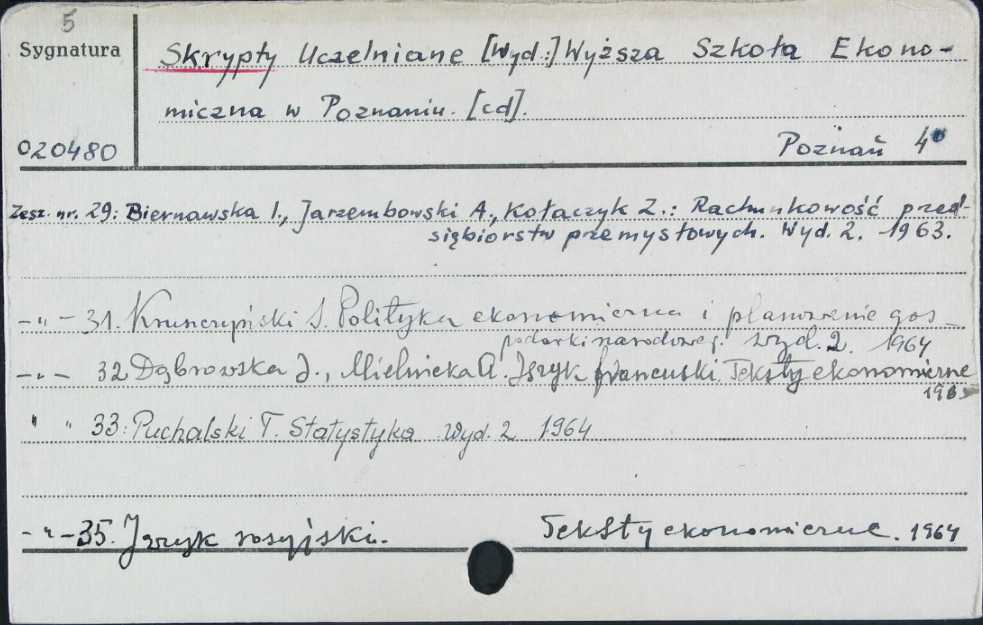 5
Sygnatura
Skrypty Uczelniane [Wyd:] Wyższa Szkoła Ekono-
miczna w Poznaniu. [cd].
020480
Poznań 4°
Zesz. nr. 29: Biernawska I., Jarzembowski A., Kołaczyk Z.: Rachunkowość przed-
siębiorstw przemysłowych. Wyd. 2. 1963.
-"- 31. Kruszczyński S. Polityka ekonomiczna i planowanie gos-
podarki narodowej. wyd. 2. 1964
-"- 32 Dąbrowska J., Mielnicka A. Język francuski. Teksty ekonomiczne
" " 33: Puchalski T. Statystyka Wyd. 2 1964
-"- 35. Język rosyjski. Teksty ekonomiczne. 1964